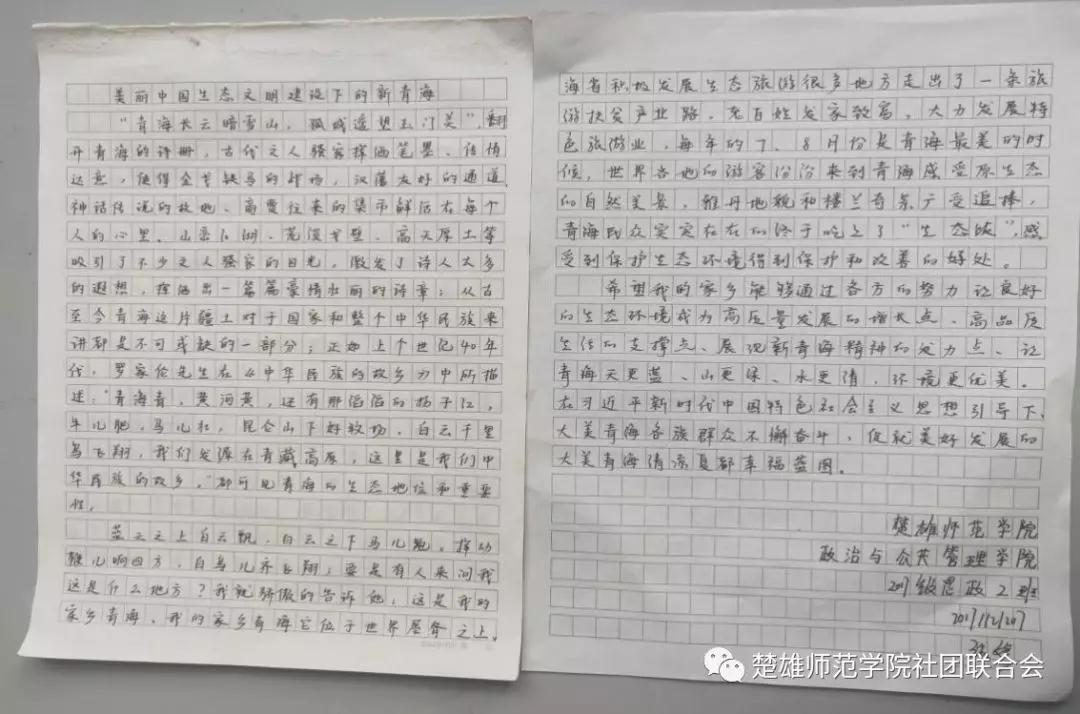 美丽中国生态文明建设下的新青海
“青海长云暗雪山，孤城遥望玉门关”，翻
开青海的诗册，古代文人骚客挥洒笔墨、诗情
达意，使得金戈铁马的战场，汉藩友好的通道、
神话传说的故地、商贾往来的集市鲜活在每个
人的心里。山峦江湖、荒漠戈壁、高天厚土等
吸引了不少文人骚客的目光，激发了诗人太多
的遐想，挥洒出一篇篇豪情壮丽的诗章；从古
至今青海这片疆土对于国家和整个中华民族来
讲都是不可或缺的一部分；正如上个世纪40年
代，罗家伦先生在《中华民族的故乡》中所描
述：“青海青，黄河黄，还有那滔滔的扬子江，
牛儿肥，马儿壮，昆仑山下好牧场，白云千里
鸟飞翔，我们发源在青藏高原，这里是我们中
华民族的故乡。”都可见青海的生态地位和重要
性。
蓝天之上白云飘，白云之下马儿跑。挥动
鞭儿响四方，白鸟儿齐飞翔；要是有人来问我
这是什么地方？我就骄傲的告诉他，这是我的
家乡青海。我的家乡青海它位于世界屋脊之上。
海省积极发展生态旅游很多地方走出了一条旅
游扶贫产业路，老百姓发家致富。大力发展特
色旅游业，每年的7、8月份是青海最美的时
候，世界各地的游客纷纷来到青海感受原生态
的自然美景，雅丹地貌和楼兰奇景广受追捧，
青海民众实实在在的终于吃上了“生态饭”，感
受到保护生态环境得到保护和改善的好处。
希望我的家乡能够通过各方的努力让良好
的生态环境成为高质量发展的增长点、高品质
生活的支撑点、展现新青海精神的发力点、让
青海天更蓝、山更绿、水更清，环境更优美。
在习近平新时代中国特色社会主义思想引导下、
大美青海各族群众不懈奋斗，促就美好发展的
大美青海清凉夏都幸福蓝图。
楚雄师范学院
政治与公共管理学院
级思政2班
楚雄师范学院社团联合会